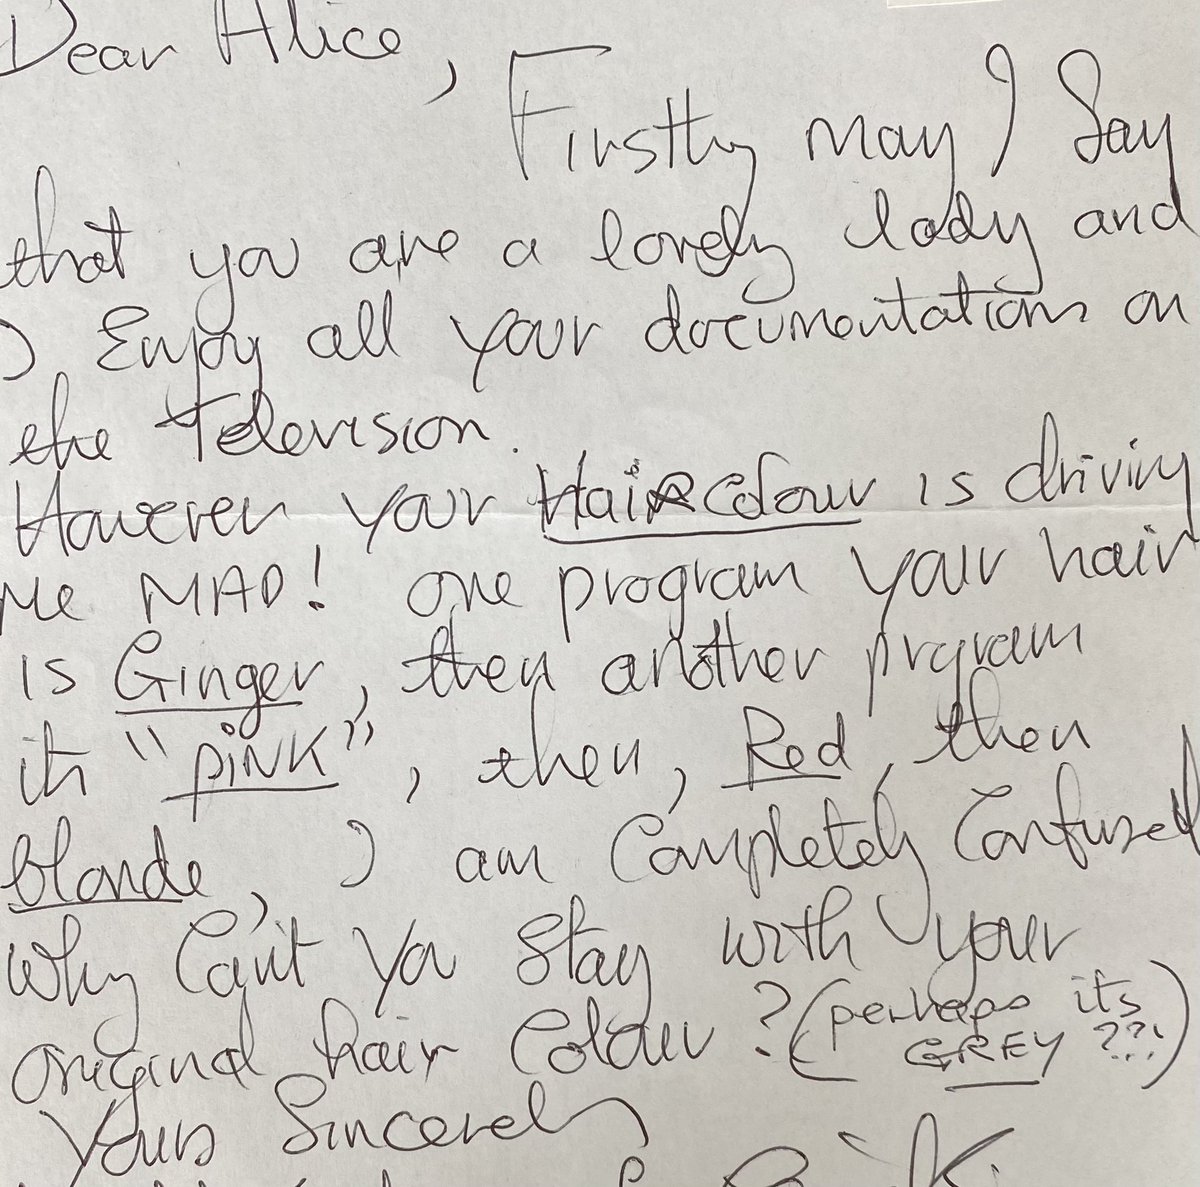 Dear Alice,
Firstly may I Say
that you are a lovely lady and
I Enjoy all your documentations on
the Television.
However your Hair Colour is driving
Me MAD! one program your hair
is Ginger, then another program
its "PiNK", then, Red, then
blonde, I am Completely Confused
Why Can't You Stay with your
original hair Colour? (perhaps its
GREY ???)
Yours Sincerely